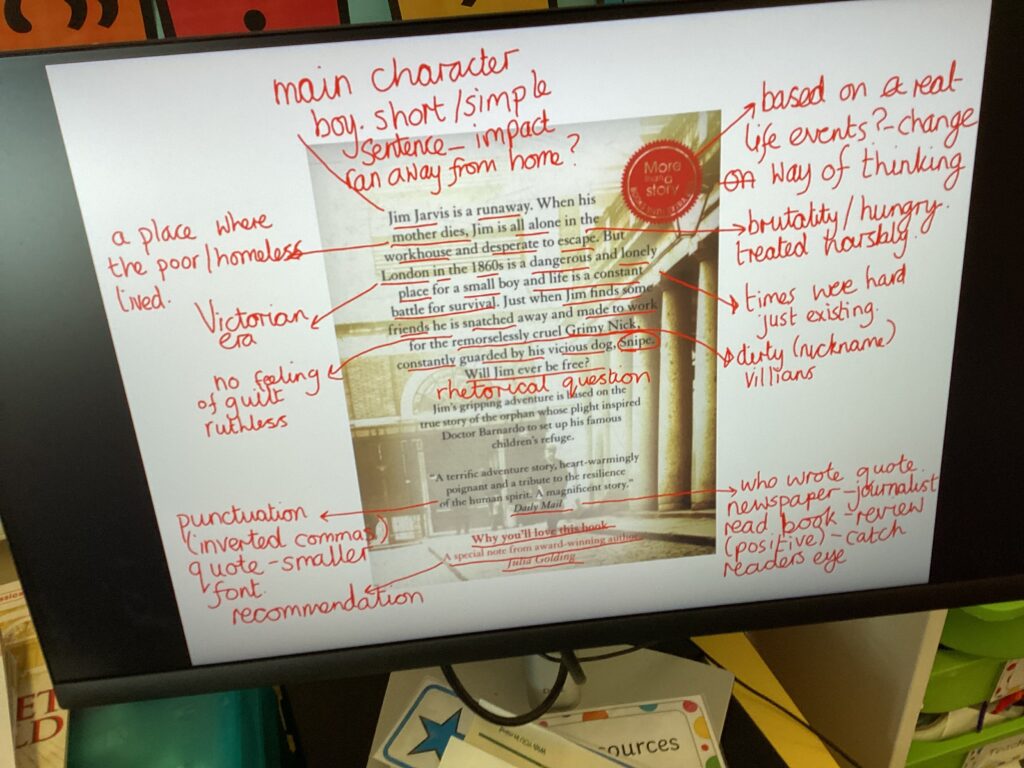 main character
boy. short/simple
sentence - impact
ran away from home?
based on a real-
life events? - change
way of thinking
More
than a
story
a place where
the poor/homeless
lived.
Jim Jarvis is a runaway. When his
mother dies, Jim is all alone in the
workhouse and desperate to escape. But
London in the 1860s is a dangerous and lonely
place for a small boy and life is a constant
battle for survival. Just when Jim finds some
friends he is snatched away and made to work
for the remorselessly cruel Grimy Nick,
constantly guarded by his vicious dog, Snipe.
Will Jim ever be free?
brutality/hungry.
treated harshly.
Victorian
era
times were hard
just existing.
no feeling
of guilt
ruthless
dirty (nickname)
villians
rhetorical question
Jim's gripping adventure is based on the
true story of the orphan whose plight inspired
Doctor Barnardo to set up his famous
children's refuge.
"A terrific adventure story, heart-warmingly
poignant and a tribute to the resilience
of the human spirit. A magnificent story."
Daily Mail
punctuation
(inverted commas)
quote - smaller
font.
who wrote quote.
newspaper - journalist
read book - review
(positive) - catch
readers eye
Why you'll love this book
A special note from award-winning author
Julia Golding
recommendation
ources